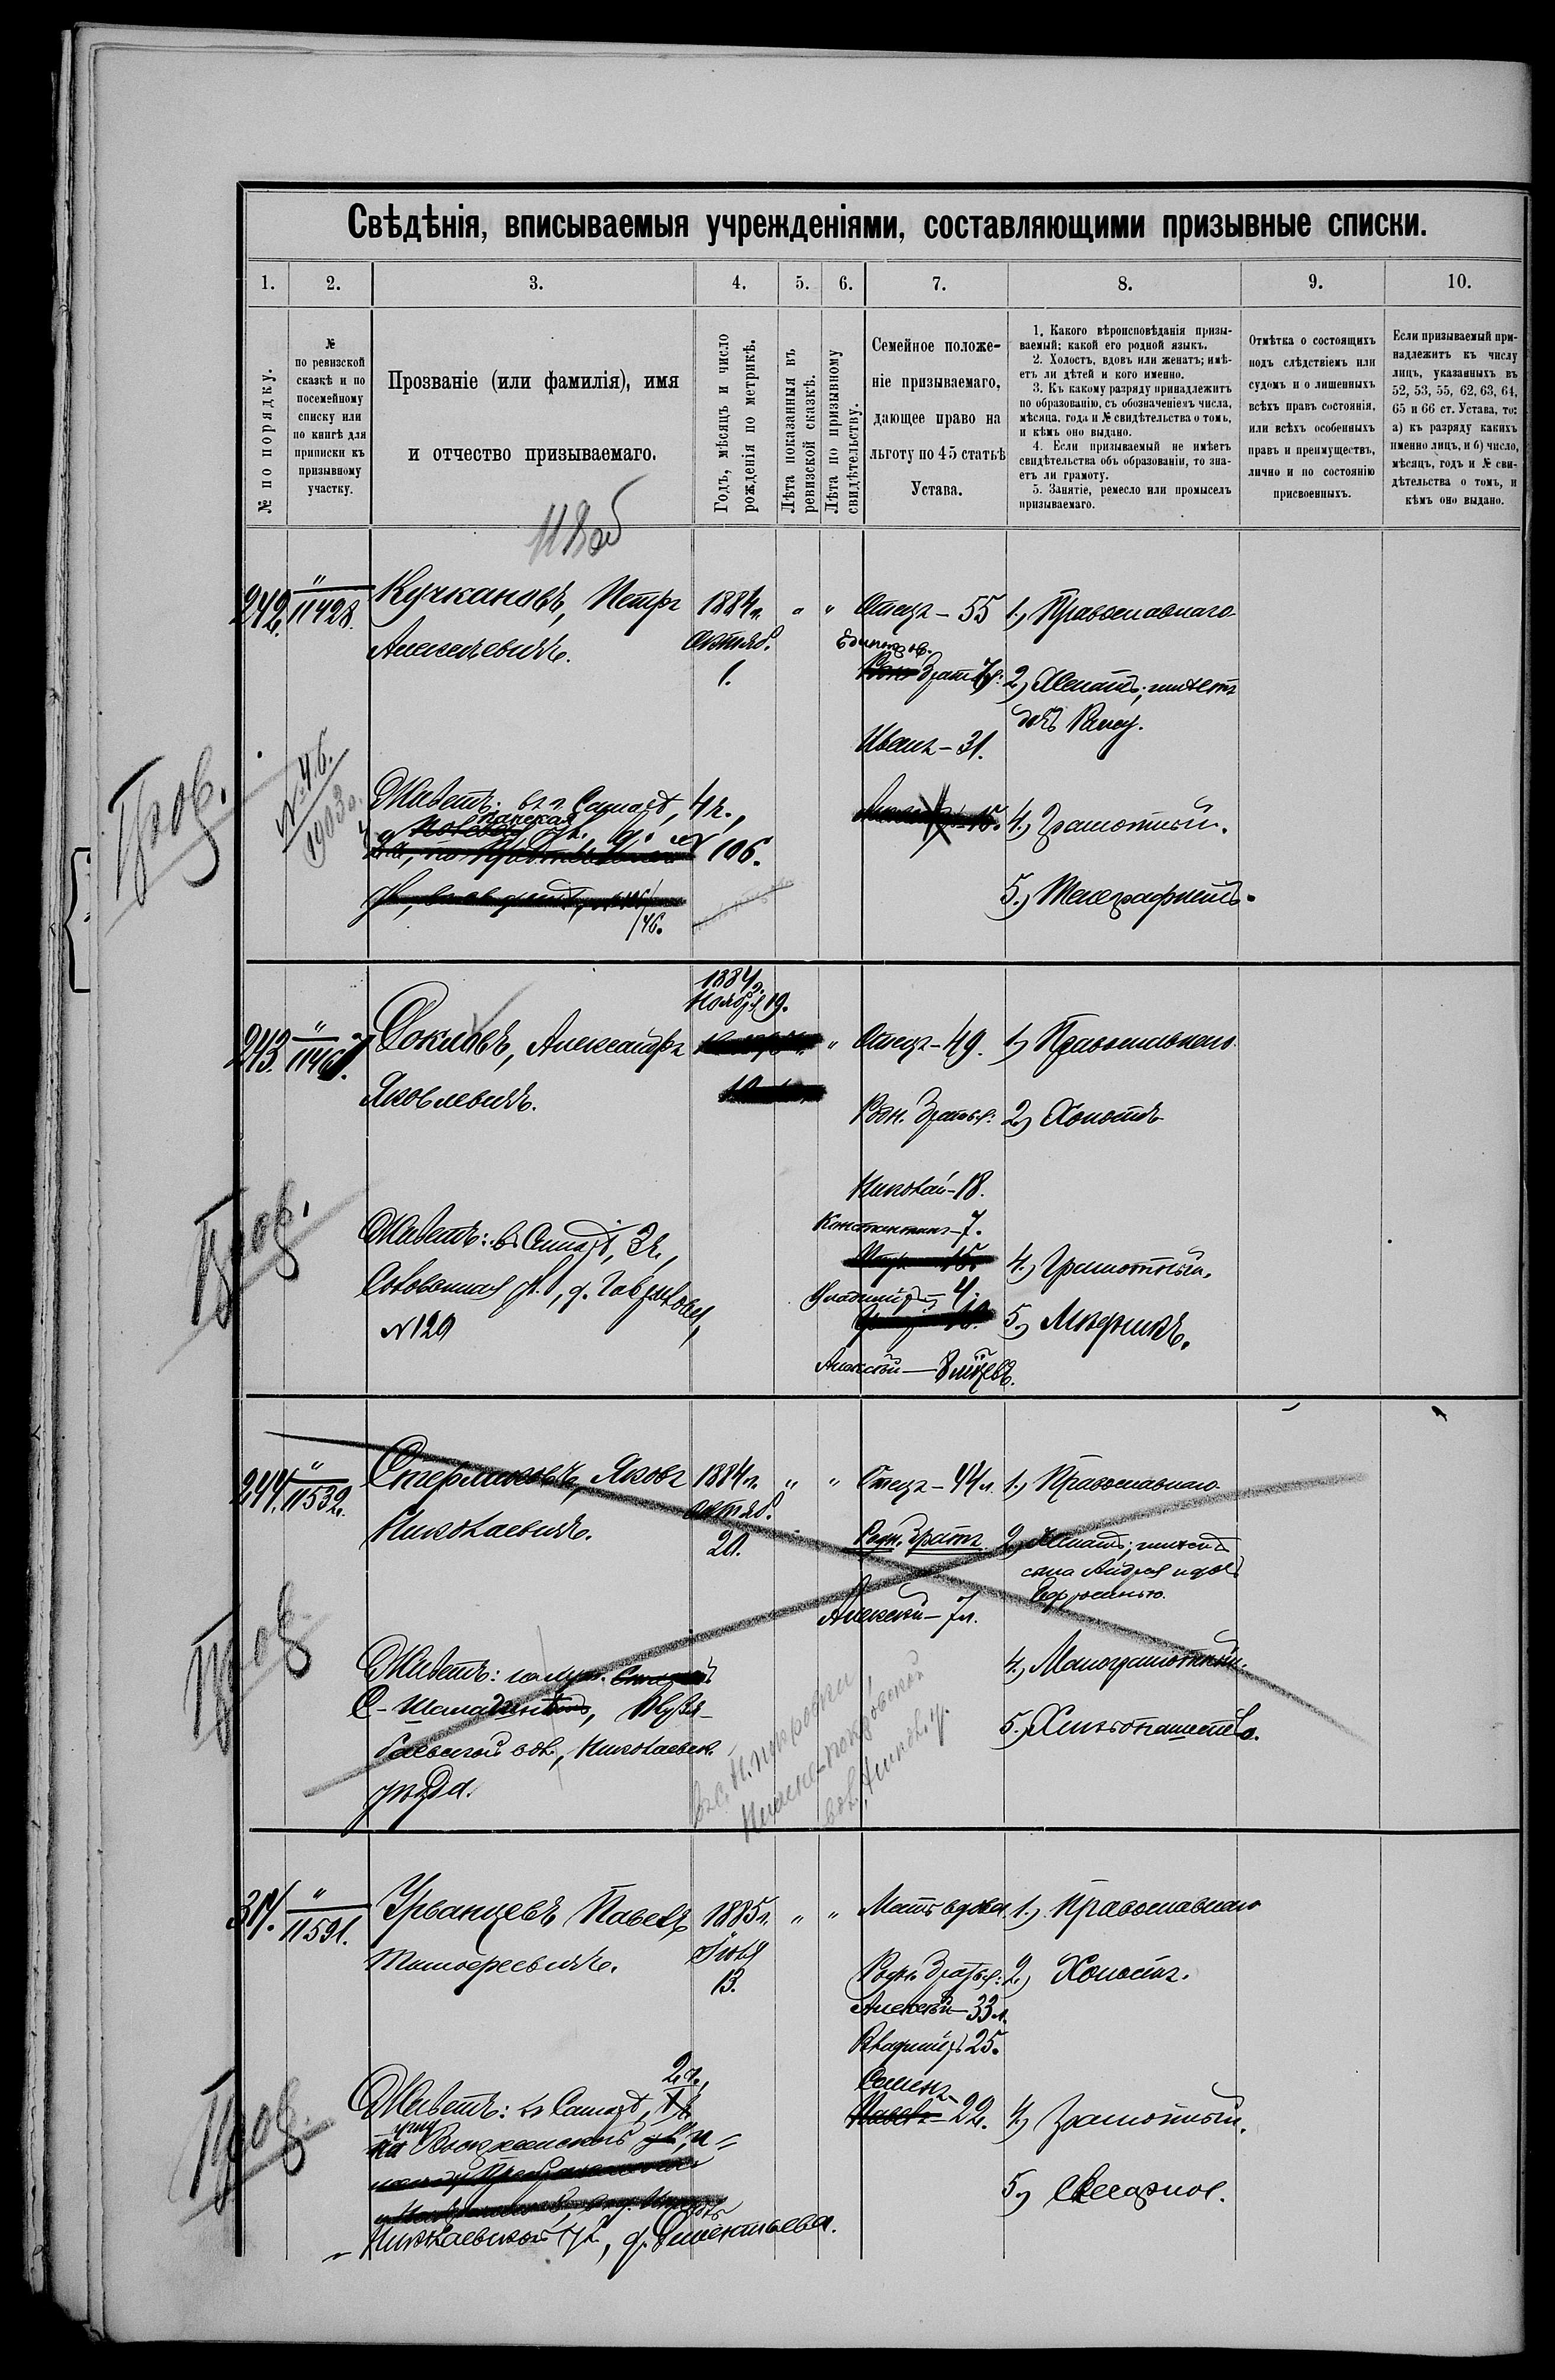 Свѣдѣнія, вписываемыя учрежденіями, составляющими призывные списки.
1. 2. 3. 4. 5. 6. 7. 8. 9. 10.
№ по порядку.
№
по ревизской
сказкѣ и по
посемейному
списку или
по книгѣ для
приписки къ
призывному
участку.
Прозваніе (или фамилія), имя
и отчество призываемаго.
Годъ, мѣсяцъ и число
рожденія по метрикѣ.
Лѣта показанныя въ
ревизской сказкѣ.
Лѣта по призывному
свидѣтельству.
Семейное положе-
ніе призываемаго,
дающее право на
льготу по 45 статьѣ
Устава.
1. Какого вѣроисповѣданія призы-
ваемый; какой его родной языкъ.
2. Холостъ, вдовъ или женатъ; имѣ-
етъ ли дѣтей и кого именно.
3. Къ какому разряду принадлежитъ
по образованію, съ обозначеніемъ числа,
мѣсяца, года и № свидѣтельства о томъ,
и кѣмъ оно выдано.
4. Если призываемый не имѣетъ
свидѣтельства объ образованіи, то зна-
етъ ли грамоту.
5. Занятіе, ремесло или промыселъ
призываемаго.
Отмѣтка о состоящихъ
подъ слѣдствіемъ или
судомъ и о лишенныхъ
всѣхъ правъ состоянія,
или всѣхъ особенныхъ
правъ и преимуществъ,
лично и по состоянію
присвоенныхъ.
Если призываемый при-
надлежитъ къ числу
лицъ, указанныхъ въ
52, 53, 55, 62, 63, 64,
65 и 66 ст. Устава, то:
а) къ разряду какихъ
именно лицъ, и б) число,
мѣсяцъ, годъ и № сви-
дѣтельства о томъ, и
кѣмъ оно выдано.
242. "
11428.
Кучкановъ, Петръ
Алексѣевичъ.
1884 г.
октяб.
1.
" "
Отецъ - 55
Единокров.
братья:
Иванъ - 31.
1.) Православнаго
2.) Женатъ; имѣетъ
дочь
4.) Грамотный.
5.) Телеграфистъ.
Пров.
№ 46.
1903 г.
Живетъ: въ г. Самарѣ, 4 ч.,
Панская
ул., д. № 106.
243. "
11467.
Соколовъ, Александръ
Яковлевичъ.
1884 г.
Ноября 19.
"
Отецъ - 49.
Родн. братья:
Николай - 18.
Константинъ - 7.
Владиміръ 4.
Алексѣй - 8 мѣсяцевъ.
1.) Православнаго
2.) Холостъ
4.) Грамотный.
5.)
Пров.
Живетъ: въ Самарѣ, 3 ч.,
Соловьиная ул., д. Гаврилова,
№ 129
244. "
11532.
Яковъ
Николаевичъ.
1884 г.
октяб.
20.
" "
Отецъ - 44 л.
Родн. братъ
Алексѣй - 7 л.
1.) Православнаго
2.) Женатъ; имѣетъ
сына Андрея и дочь
4.) Малограмотный.
5.) Хлѣбопашество.
Пров.
Живетъ:
вол., Николаевск.
уѣзда.
317. "
11591.
Урванцевъ Павелъ
Тимофеевичъ.
1885 г.
Іюля
13.
" "
Мать вдова
Родн. братья:
Алексѣй - 33 л.
Владиміръ 25.
Семенъ -
22.
1.) Православнаго
2.) Холостъ.
4.) Грамотный.
5.) Слесарное.
Пров.
2 ч.,
Живетъ: въ Самарѣ,
угл.
Воскресенской и
Николаевской ул., д.